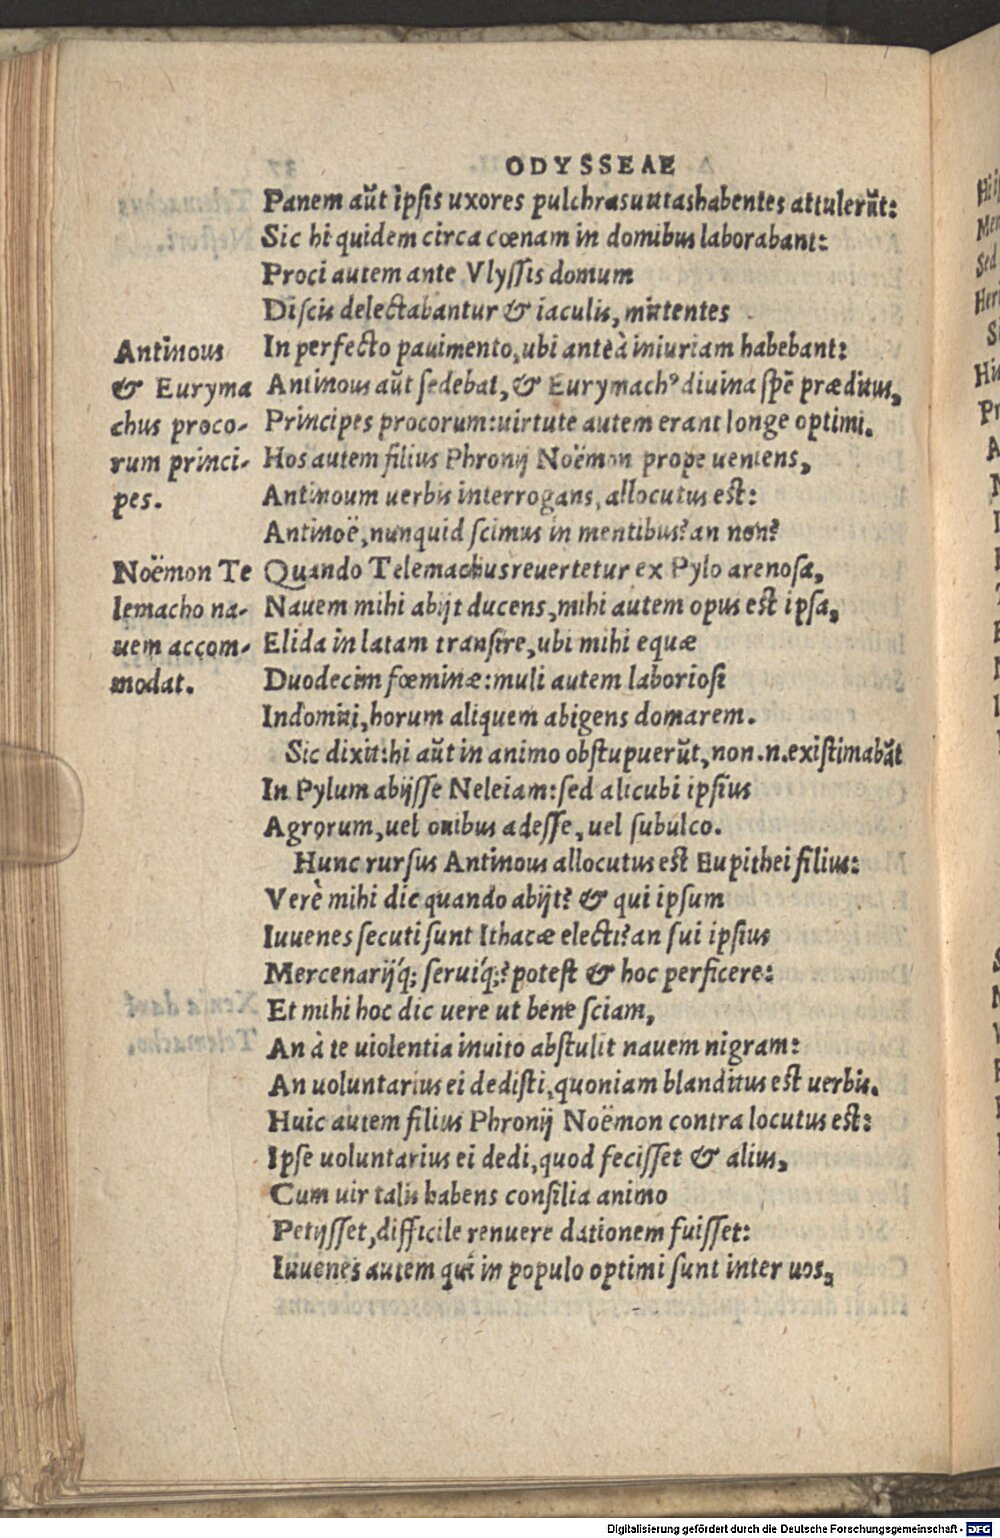 ODYSSEAE
Panem aūt ipsis uxores pulchras uittas habentes attulerūt:
Sic hi quidem circa cœnam in domibus laborabant:
Proci autem ante Vlyſſis domum
Diſcis delectabantur & iaculis, mittentes
In perfecto pauimento, ubi anteà iniuriam habebant:
Antinous aūt ſedebat, & Eurymachꝰ diuina ſpē præditus,
Principes procorum: uirtute autem erant longe optimi.
Hos autem filius Phronij Noëmon prope ueniens,
Antinoum uerbis interrogans, allocutus eſt:
Antinoë, nunquid ſcimus in mentibus? an non?
Quando Telemachus reuertetur ex Pylo arenoſa,
Nauem mihi abijt ducens, mihi autem opus eſt ipſa,
Elida in latam tranſire, ubi mihi equæ
Duodecim fœminæ: muli autem laborioſi
Indomiti, horum aliquem abigens domarem.
Sic dixit: hi aūt in animo obſtupuerūt, non .n. exiſtimabāt
In Pylum abijſſe Neleiam: ſed alicubi ipſius
Agrorum, uel ouibus adeſſe, uel ſubulco.
Hunc rurſus Antinous allocutus eſt Eupithei filius:
Verè mihi dic quando abijt? & qui ipſum
Iuuenes ſecuti ſunt Ithacæ electi? an ſui ipſius
Mercenarijq́; ſeruiq́;? poteſt & hoc perficere:
Et mihi hoc dic uere ut bene ſciam,
An à te uiolentia inuito abſtulit nauem nigram:
An uoluntarius ei dediſti, quoniam blanditus eſt uerbis.
Huic autem filius Phronij Noëmon contra locutus eſt:
Ipſe uoluntarius ei dedi, quod feciſſet & alius,
Cum uir talis habens conſilia animo
Petijſſet, difficile renuere dationem fuiſſet:
Iuuenes autem qui in populo optimi ſunt inter uos,
Antinous
& Euryma
chus proco-
rum princi-
pes.
Noëmon Te
lemacho na-
uem accom-
modat.
Digitalisierung gefördert durch die Deutsche Forschungsgemeinschaft - DFG